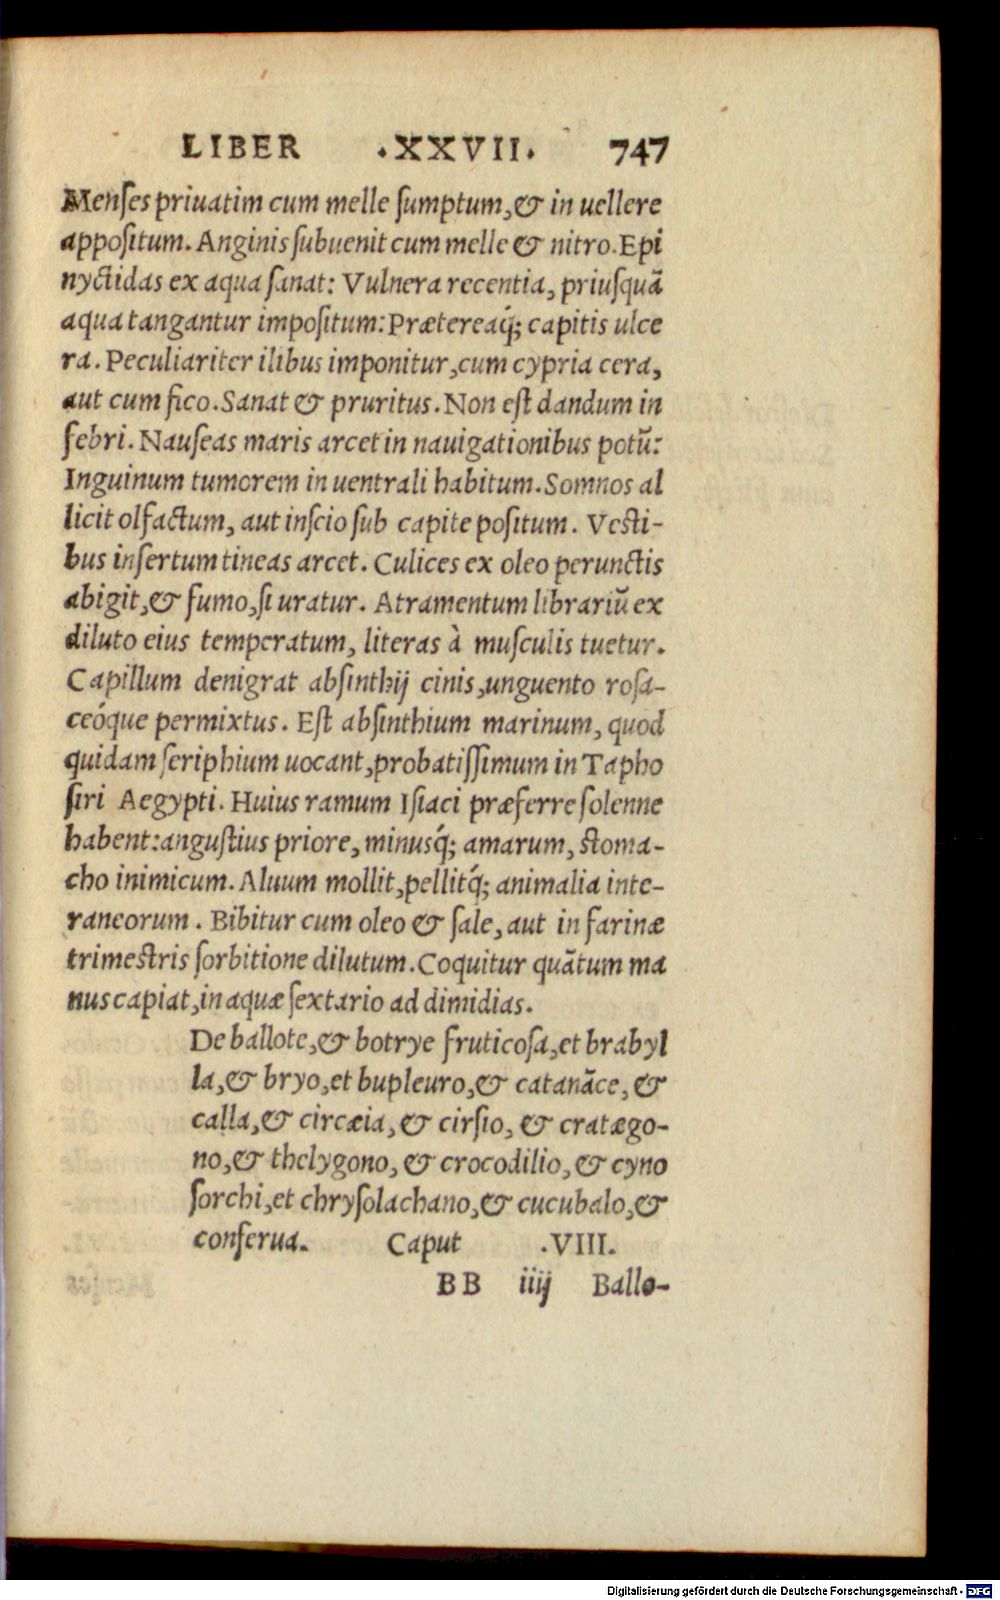 LIBER .XXVII. 747
Menſes priuatim cum melle ſumptum, & in uellere
appoſitum. Anginis ſubuenit cum melle & nitro. Epi
nyctidas ex aqua ſanat: Vulnera recentia, priuſquã
aqua tangantur impoſitum: Prætereaq́; capitis ulce
ra. Peculiariter ilibus imponitur, cum cypria cera,
aut cum fico. Sanat & pruritus. Non eſt dandum in
febri. Nauſeas maris arcet in nauigationibus potũ:
Inguinum tumorem in uentrali habitum. Somnos al
licit olfactum, aut inſcio ſub capite poſitum. Veſti-
bus inſertum tineas arcet. Culices ex oleo perunctis
abigit, & fumo, ſi uratur. Atramentum librariũ ex
diluto eius temperatum, literas à muſculis tuetur.
Capillum denigrat abſinthij cinis, unguento roſa-
ceóque permixtus. Eſt abſinthium marinum, quod
quidam ſeriphium uocant, probatiſſimum in Tapho
ſiri Aegypti. Huius ramum Iſiaci præferre ſolenne
habent: anguſtius priore, minusq́; amarum, ſtoma-
cho inimicum. Aluum mollit, pellitq́; animalia inte-
raneorum. Bibitur cum oleo & ſale, aut in farinæ
trimeſtris ſorbitione dilutum. Coquitur quãtum ma
nus capiat, in aquæ ſextario ad dimidias.
De ballote, & botrye fruticoſa, et brabyl
la, & bryo, et bupleuro, & catanãce, &
calla, & circæia, & cirſio, & cratægo-
no, & thelygono, & crocodilio, & cyno
ſorchi, et chryſolachano, & cucubalo, &
conſerua. Caput .VIII.
BB iiij Ballo-
Digitalisierung gefördert durch die Deutsche Forschungsgemeinschaft - DFG